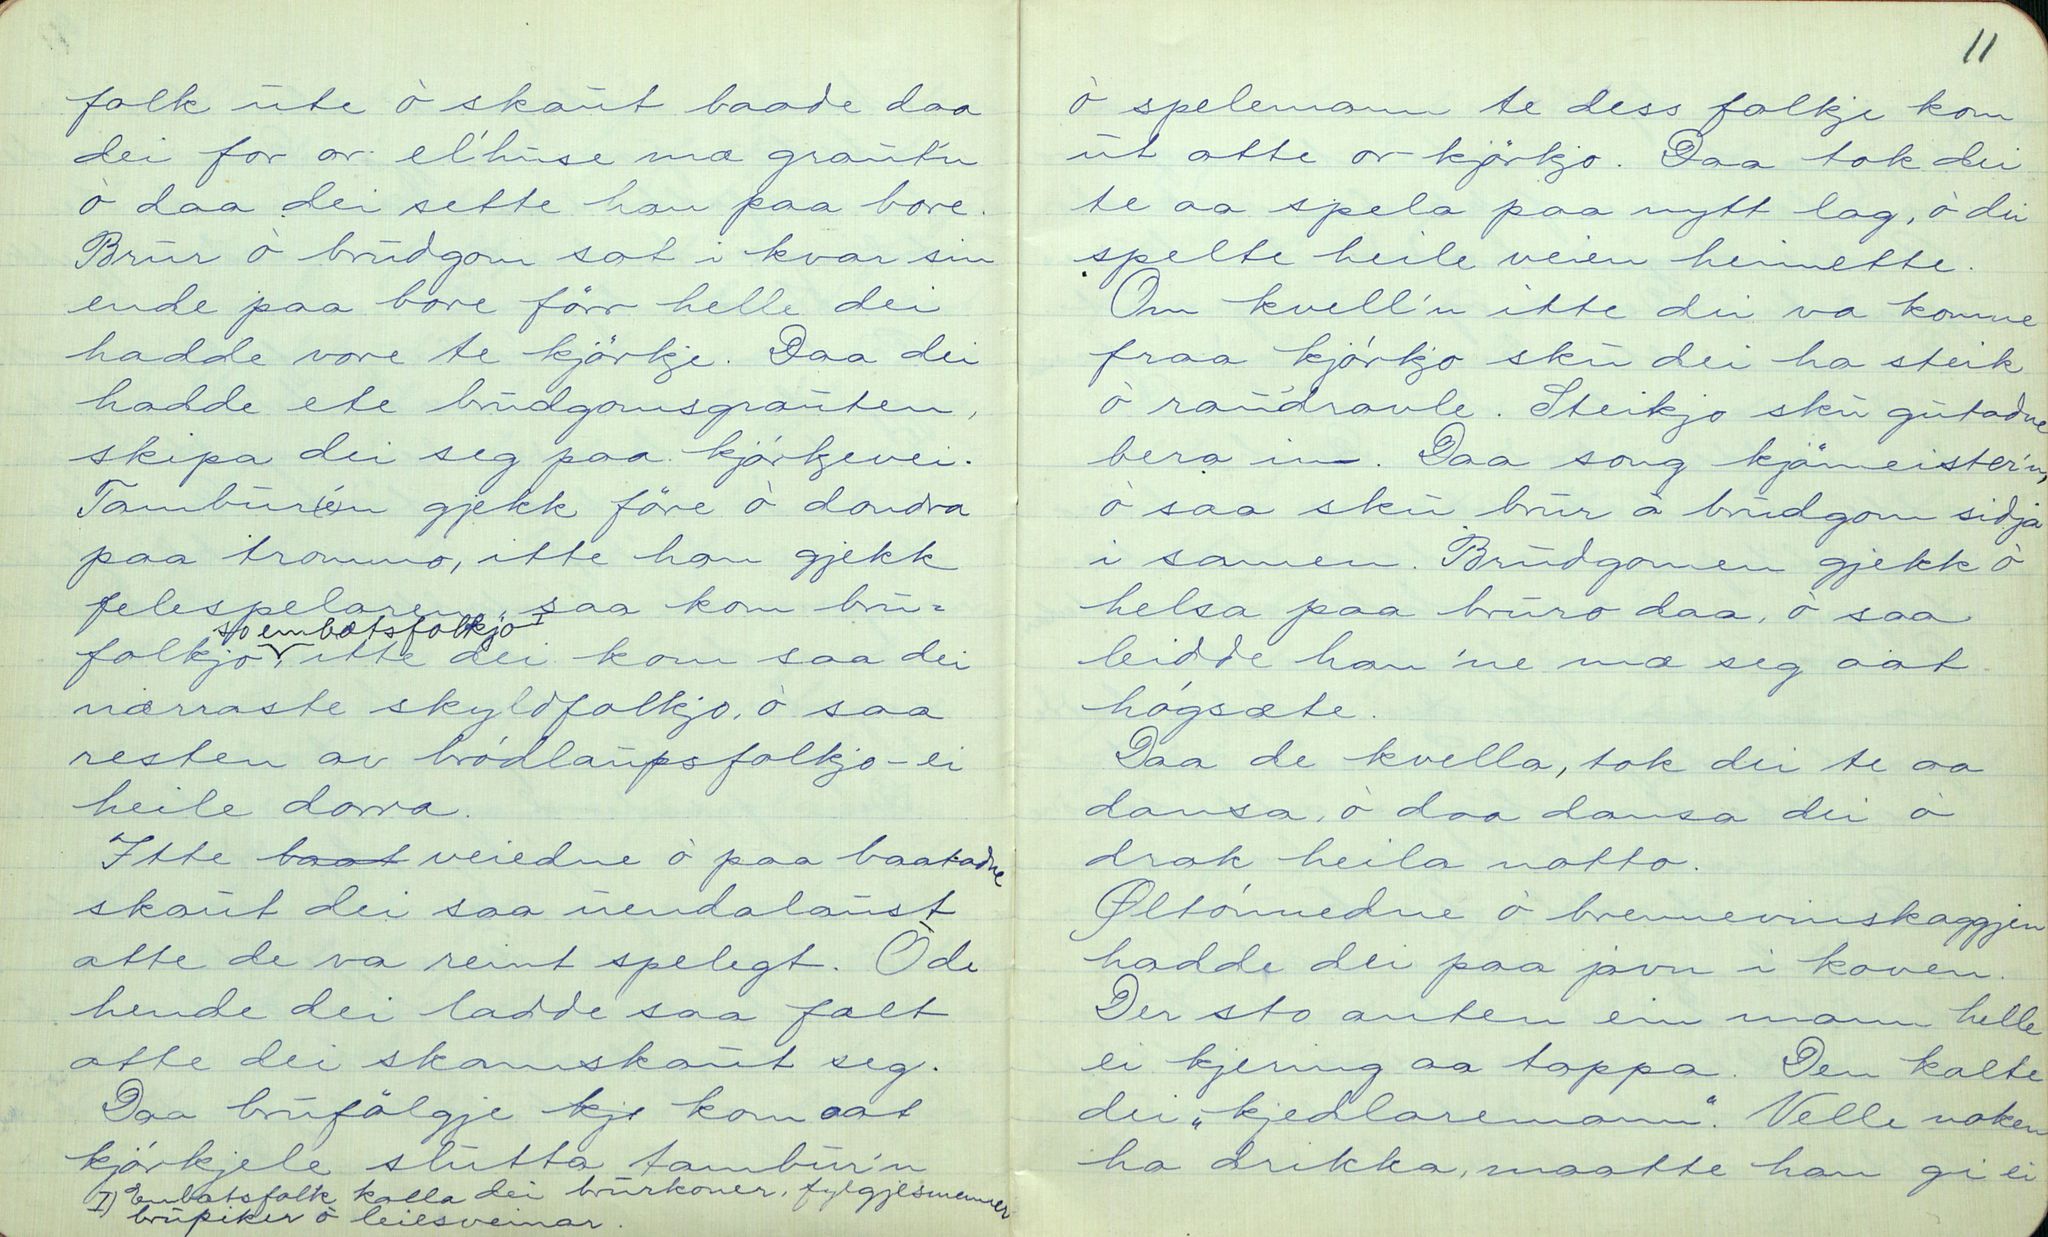 folk ute ò skaut baade daa
dei for or el'huse mæ graut'n
ò daa dei sette han paa bore.
Brur ò brudgom sat i kvar sin
ende paa bore förr helle dei
hadde vore te kjörkje. Daa dei
hadde ete brudgomsgrauten,
skipa dei seg paa kjórkjevei.
Tamburén gjekk före ò dondra
paa trommo, itte han gjekk
felespelaren, saa kom bru-
so embætsfolkjo I
folkjo, itte dei kom saa dei
nærraste skyldfolkjo, ò saa
resten av bródlaupsfolkjo - ei
heile dorra.
Itte baat veiedne ò paa baatadne
skaut dei saa uendalaust
atte de va reint spelegt. Ò de
hende dei ladde saa fælt
atte dei skamskaut seg.
Daa brufölgje kje kom aat
kjórkjele slutta tambur'n
I) Embatsfolk kalla dei brurkoner, fylgjesmenner
brupiker ò leiesveinar.
11
ò spelemann te dess folkje kom
ut atte or kjörkjo. Daa tok dei
te aa spela paa nytt lag, ò dei
spelte heile veien heimette.
Om kvell'n itte dei va komne
fraa kjórkjo sku dei ha steik
ò raudravle. Steikjo sku gutadne
bera inn. Daa song kjömeister'n,
ò saa sku brur à brudgom sidja
i samen. Brudgomen gjekk ò
helsa paa bruro daa, ò saa
leidde han 'ne mæ seg aat
hógsæte.
Daa de kvella, tok dei te aa
dansa, ò daa dansa dei ò
drak heila natto.
Øltónnedne ò brennevinskaggjen
hadde dei paa javn i koven.
Der sto anten ein mann helle
ei kjering aa tappa. Den kalte
dei „kjedlaremann". Velle noken
ha drikka, maatte han gi ei